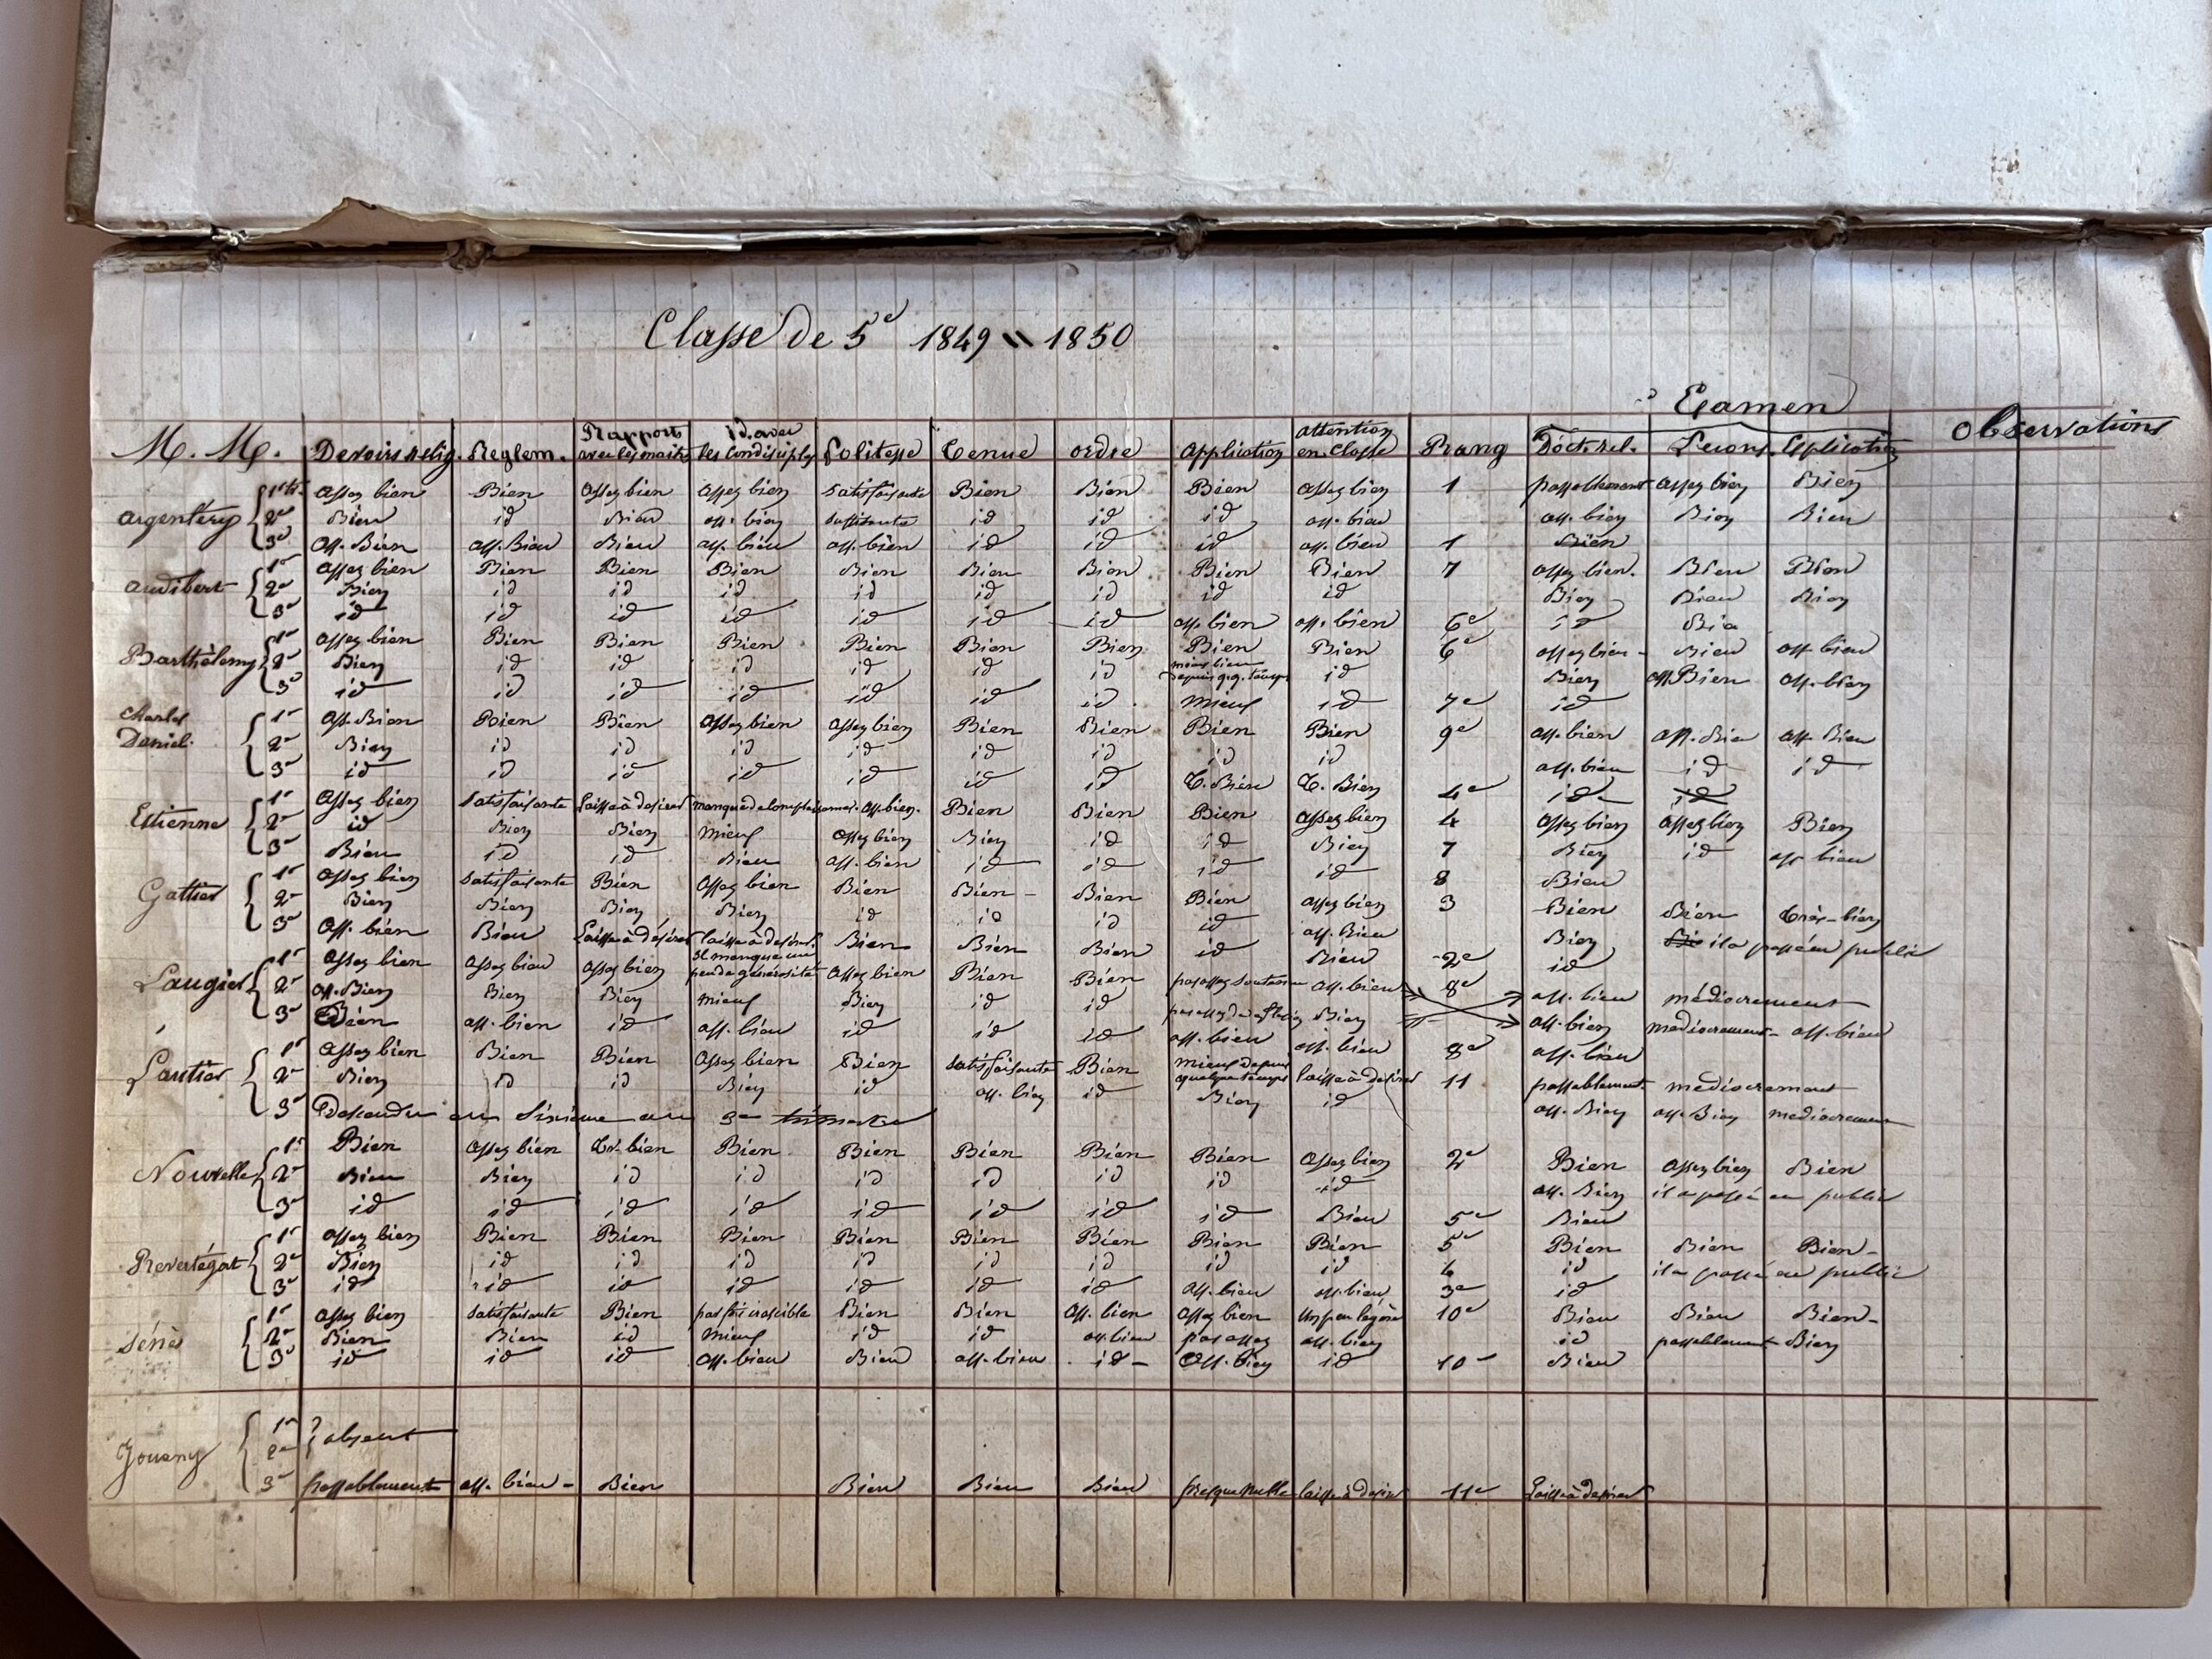 Classe de 5e 1849 = 1850
Examen
M. M. Devoirs relig. Reglem. Rapports avec les maîtres id. avec les condisciples Politesse Tenue ordre application attention en classe Rang Doct. rel. Lecons. Explication Observations
argentery 1er tr. assez bien Bien assez bien assez bien satisfaisante Bien Bien Bien assez bien 1 passablement assez bien Bien
2e Bien id Bien ass. bien suffisante id id id ass. bien ass. bien Bien Bien
3e ass. Bien ass. Bien Bien ass. bien ass. bien id id id ass. bien 1 Bien
audibert 1er assez bien Bien Bien Bien Bien Bien Bien Bien Bien 7 assez bien. Bien Bien
2e Bien id id id id id id id id Bien Bien Bien
3e id id id id id id id ass. bien ass. bien 6e id Bien
Barthélemy 1er assez bien Bien Bien Bien Bien Bien Bien Bien Bien 6e assez bien - Bien ass. bien
2e Bien id id id id id id moins bien depuis q.q. temps id Bien ass. Bien ass. bien
3e id id id id id id id. mieux id 7e id
Charles Daniel. 1er ass. Bien Bien Bien assez bien assez bien Bien Bien Bien Bien 9e ass. bien ass. Bien ass. Bien
2e Bien id id id id id id id id ass. bien id id
3e id id id id id id id T. Bien T. Bien 4e id id
Estienne 1er assez bien satisfaisante laisse à desirer manque de complaisance. ass. bien. Bien Bien Bien assez bien 4 assez bien assez bien Bien
2e id Bien Bien mieux assez bien Bien id id Bien 7 Bien id ass bien
3e Bien id id Bien ass. bien id id id id 8 Bien
Gattier 1er assez bien satisfaisante Bien assez bien Bien Bien - Bien Bien assez bien 3 Bien Bien très-bien
2e Bien Bien Bien Bien id id id id ass. Bien Bien il a passé en public
3e ass. bien Bien laisse à désirer laisse à desirer. Bien Bien Bien id Bien 2e id
Laugier 1er assez bien assez bien assez bien il manque un peu de générosité assez bien Bien Bien pas assez soutenue ass. bien 8e ass. bien médiocrement
2e ass. Bien Bien Bien mieux Bien id id pas assez de Bien ass. bien médiocrement - ass. bien
3e Bien ass. bien id ass. bien id id id ass. bien ass. bien 8e ass. bien
Lautier 1er assez bien Bien Bien assez bien Bien satisfaisante Bien mieux depuis quelque temps laisse à desirer 11 passablement médiocrement
2e Bien id id Bien id ass. bien id Bien id ass. Bien ass. Bien mediocrement
3e Descendu en sixième au 3e trimestre
Nouvelle 1er Bien assez bien tr. bien Bien Bien Bien Bien Bien assez bien 2e Bien assez bien Bien
2e Bien Bien id id id id id id id ass. Bien il a passé en public
3e id id id id id id id id Bien 5e Bien
Revertégat 1er assez bien Bien Bien Bien Bien Bien Bien Bien Bien 5e Bien Bien Bien -
2e Bien id id id id id id id id 4 id il a passé en public
3e id id id id id id id ass. bien ass. bien 3e id
sénès 1er assez bien satisfaisante Bien parfois irascible Bien Bien ass. bien assez bien un peu légère 10e Bien Bien Bien -
2e Bien Bien id mieux id id ass. bien pas assez ass. bien id passablement Bien
3e id id id ass. bien Bien ass. bien id - ass. bien id 10e Bien
Jouany 1er absent
2e
3e passablement ass. bien - Bien Bien Bien Bien presque nulle laisse à desirer 11e laisse à desirer